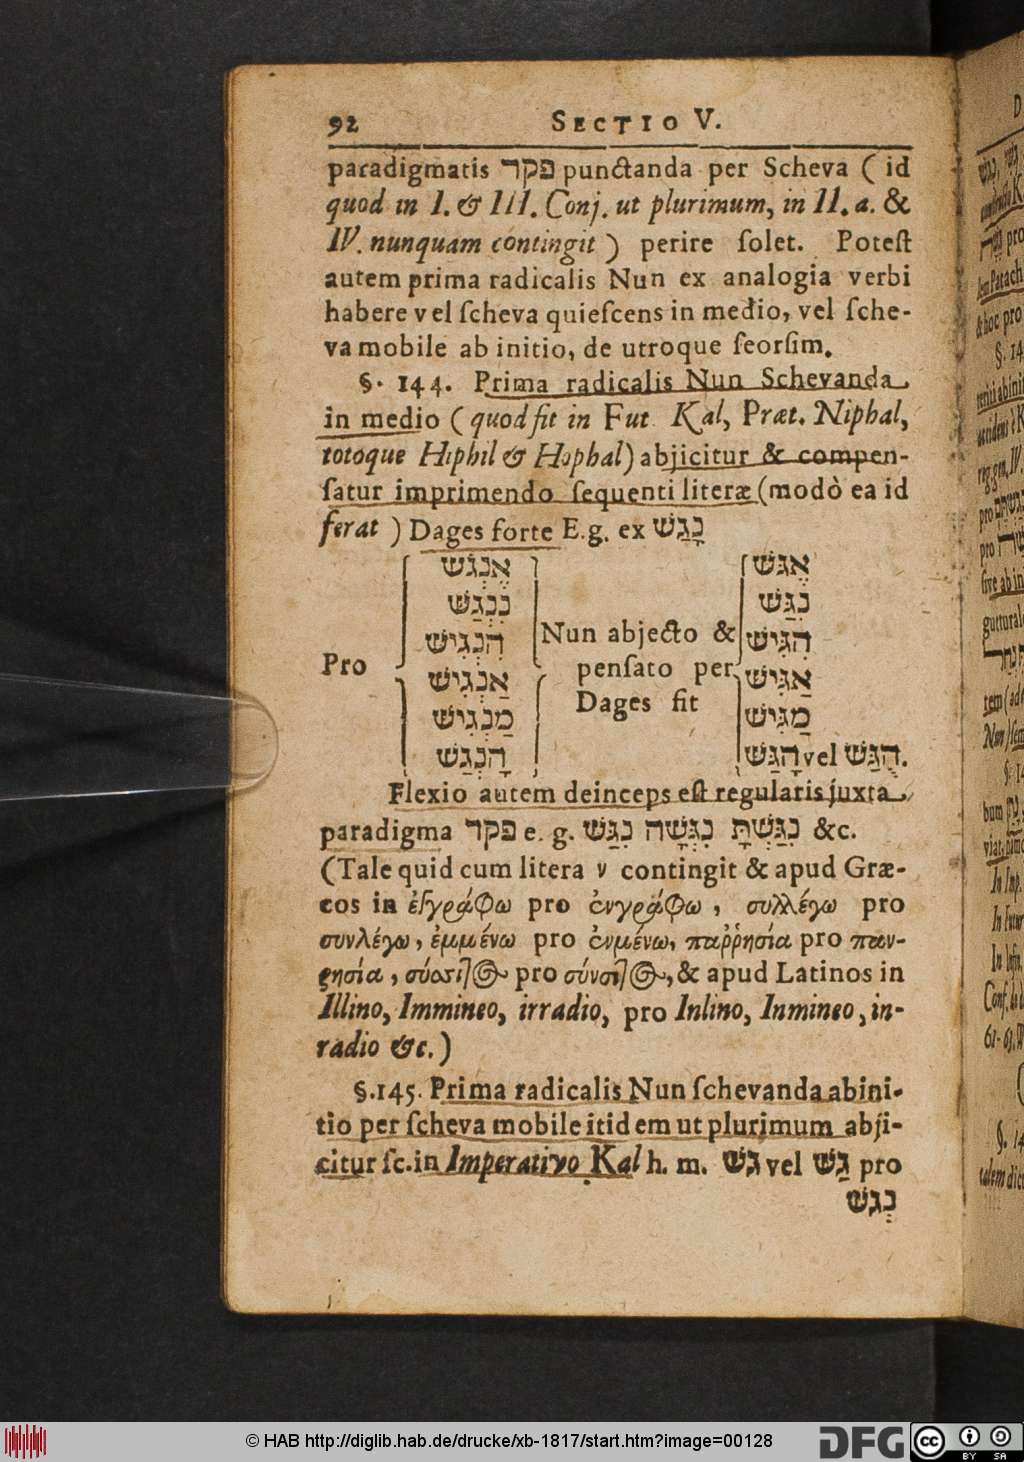 92 SECTIO V.
paradigmatis פקד punctanda per Scheva ( id
quod in I. & III. Conj. ut plurimum, in II. a. &
IV. nunquam contingit ) perire ſolet. Poteſt
autem prima radicalis Nun ex analogia verbi
habere vel ſcheva quieſcens in medio, vel ſche-
va mobile ab initio, de utroque ſeorſim.
§. 144. Prima radicalis Nun Schevanda
in medio ( quod fit in Fut Kal, Præt. Niphal,
totoque Hiphil & Hophal) abjicitur & compen-
ſatur imprimendo ſequenti literæ (modò ea id
ferat ) Dages forte E. g. ex נָגַשׁ
אֶנְגּשׁ אֶגּשׁ
נִנְגַּשׁ נִגַּשׁ
הִנְגִּישׁ Nun abjecto & הִגִּישׁ
Pro אַנְגִּישׁ penſato per אַגִּישׁ
מַנְגִּישׁ Dages fit מַגִּישׁ
הָנְגַּשׁ הָגַּשׁ vel הֻגַּשׁ.
Flexio autem deinceps eſt regularis juxta
paradigma פקד e. g. נִגַּשׁ נִגְּשָׁה נִגַּשְׁתָּ &c.
(Tale quid cum litera ν contingit & apud Græ-
cos in ἐγγράφω pro ἐνγράφω, συλλέγω pro
συνλέγω, ἐμμένω pro ἐνμένω, παῤῥησία pro παν-
ρησία, pro & apud Latinos in
Illino, Immineo, irradio, pro Inlino, Inmineo, in-
radio &c.)
§. 145. Prima radicalis Nun ſchevanda ab ini-
tio per ſcheva mobile itidem ut plurimum abji-
citur ſc. in Imperativo Kal h. m. גּשׁ vel גַּשׁ pro
נְגשׁ
© HAB http://diglib.hab.de/drucke/xb-1817/start.htm?image=00128
DFG
cc BY SA